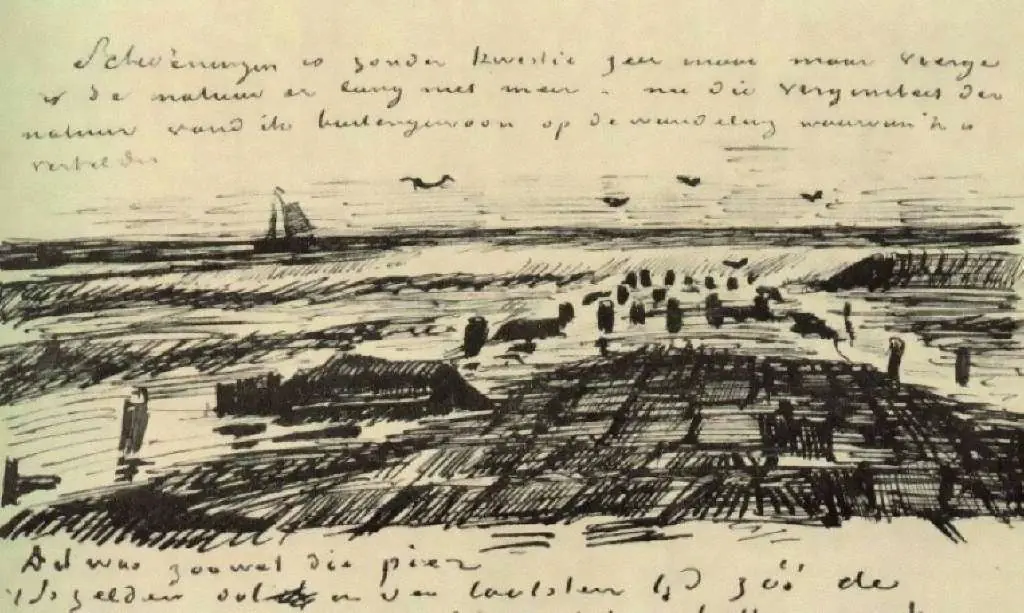 Scheveningen is zonder kwestie zeer mooi maar vierge
is de natuur er lang niet meer - nu die der
natuur vond ik buitengewoon op de wandeling waarvan ik u
vertelde
Het was zoowat die pier
zelden in den laatsten tijd zóó de